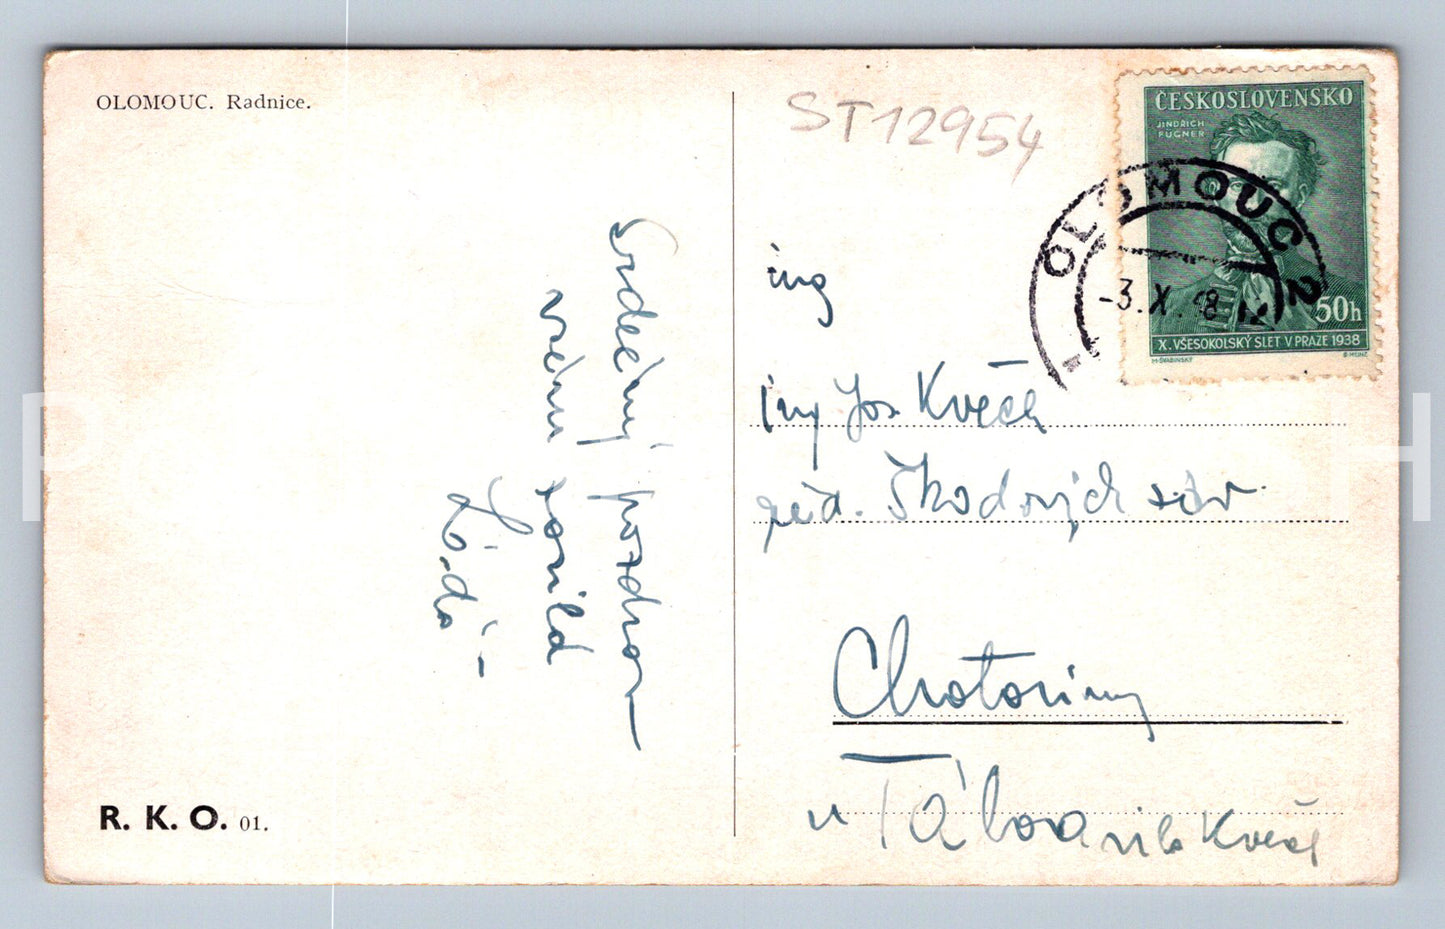 OLOMOUC. Radnice.
ST12954
ČESKOSLOVENSKO
JINDŘICH
FÜGNER
50h
X. VŠESOKOLSKÝ SLET V PRAZE 1938
OLOMOUC 2
-3.X.
ing
Ing Jos Kvěch
řed. Škodových záv.
Chotoviny
u Tábora
Kvěch
Srdečný pozdrav
všem
Láďa
R. K. O. 01.